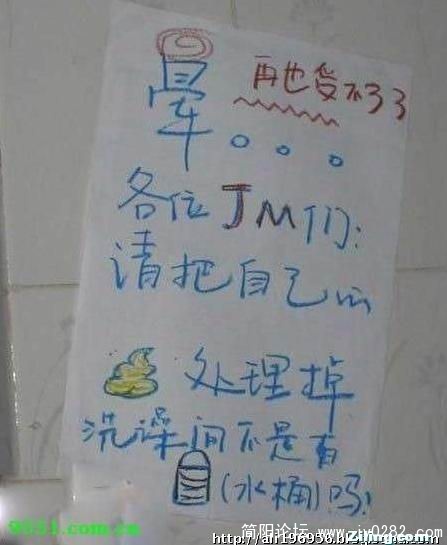 晕 再也受不了了
。。。
各位JM们:
请把自己的
处理掉
洗澡间不是有
(水桶)吗!
9551.com.cn
简阳论坛:www.ziy0282.com